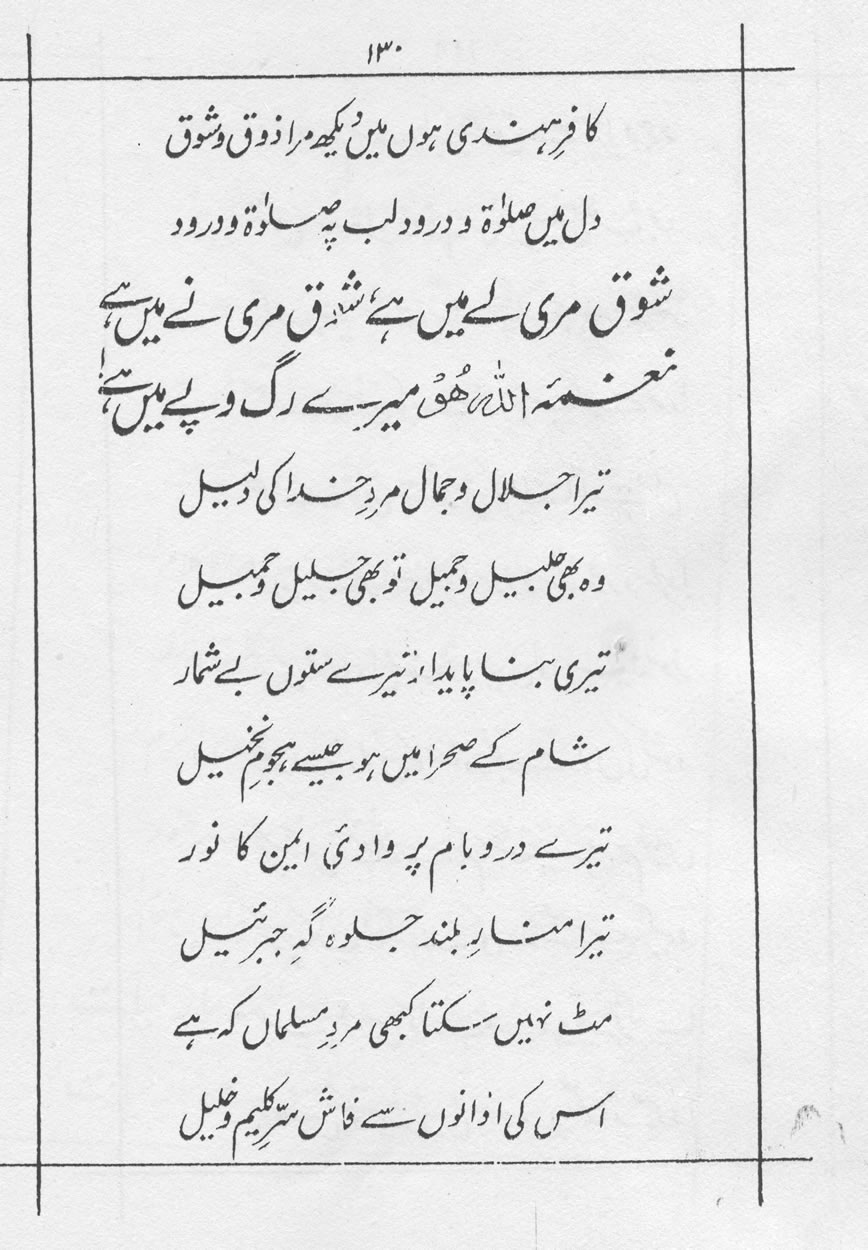 ۱۳۰
کافرِ ہندی ہوں میں دیکھ مرا ذوق و شوق
دل میں صلوٰۃ و درود لب پہ صلوٰۃ و درود
شوق مری لے میں ہے، شوق مری نے میں ہے
نغمۂ اللہ ھُوْ میرے رگ و پے میں ہے!
تیرا جلال و جمال مردِ خدا کی دلیل
وہ بھی جلیل و جمیل تو بھی جلیل و جمیل
تیری بنا پایدار تیرے ستوں بے شمار
شام کے صحرا میں ہو جیسے ہجومِ نخیل
تیرے در و بام پر وادئ ایمن کا نور
تیرا منارِ بلند جلوہ گہِ جبرئیل
مٹ نہیں سکتا کبھی مردِ مسلماں کہ ہے
اس کی اذانوں سے فاش سرِّ کلیم و خلیل